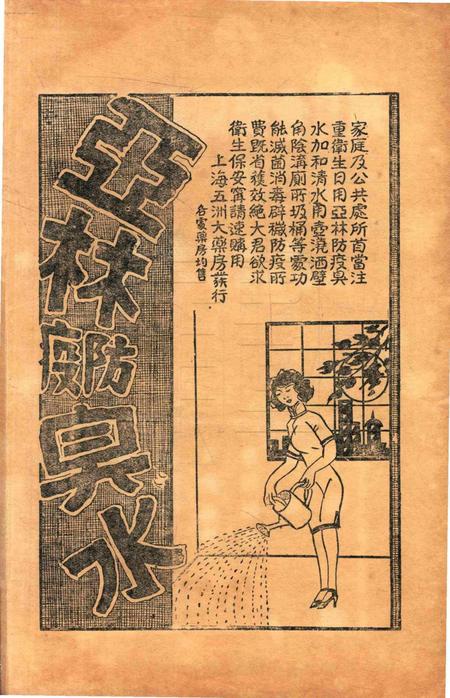 家庭及公共處所首當注
重衛生日用亞林防疫臭
水加和清水用壺澆洒壁
角陰溝廁所圾桶等處功
能滅菌消毒辟穢防疫所
費既省獲效絕大君欲求
衛生保安寗請速購用
上海五洲大藥房發行
各家藥房均售
亞林防疫臭水